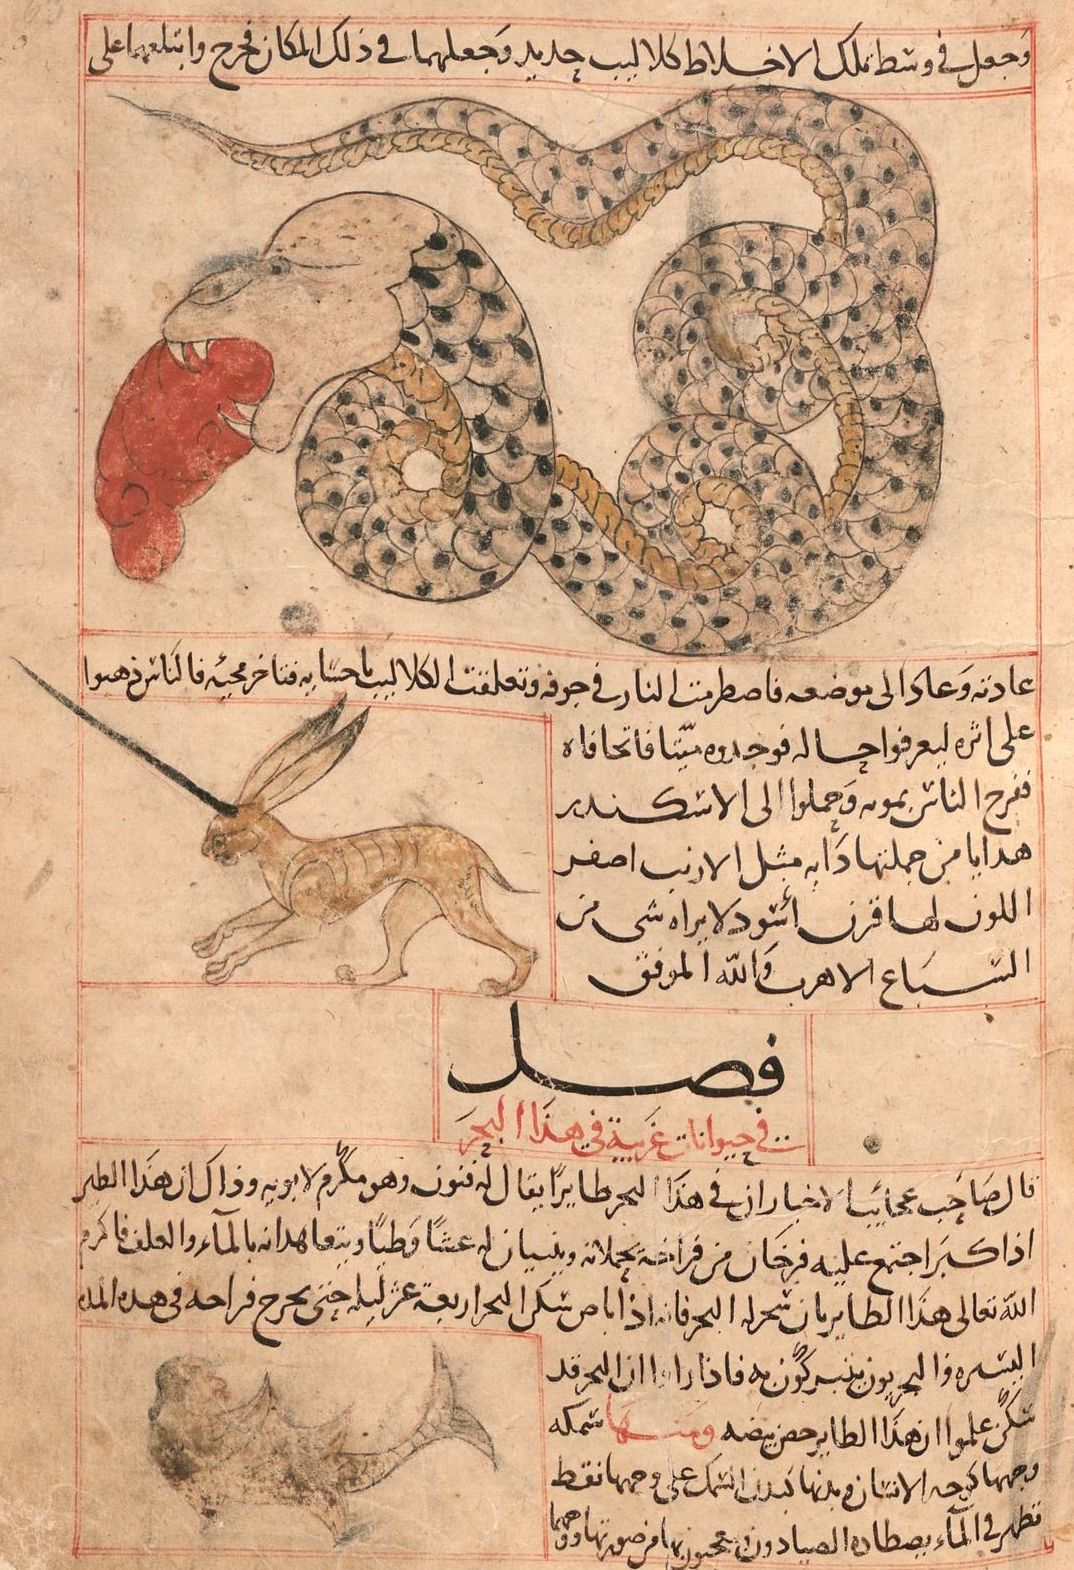 وجعل في وسط تلك الاخلاط كلاليب حديد وجعلهما في ذلك المكان فخرج وابتلعهما على
عادته وعاد الى موضعه فاضطرمت النار في جوفه وتعلقت الكلاليب باحشايه فتاخر مجيئه فالناس ذهبوا
على اثره ليعرفوا حاله فوجدوه ميتا فاتحا فاه
ففرح الناس بموته وحملوا الى الاسكندر
هدايا من جملتها دابه مثل الارنب اصفر
اللون لها قرن اسود لا يراه شى من
السباع الا هرب والله الموفق
فصل
في حيوانات غريبة في هذا البحر
قال صاحب عجايب الاخبار ان في هذا البحر طايرا يقال له فنون وهو مكرم لابويه وذاك ان هذا الطير
اذا كبرا اجتمع عليه فرخان من فراخه يحملانه ويبنيان له عشا وطيا ويتعاهدانه بالماء والعلف فاكرم
الله تعالى هذا الطاير بان سخر له البحر فانه اذا باض سكن البحر اربعة عشر ليله حتى يخرج فراخه في هذه المده
اليسيره والبحريون يتبركون به فاذا راوا ان البحر قد
سكن علموا ان هذا الطاير حضن بيضه ومنها سمكه
وجهها كوجه الانسان وبدنها كبدن السمك على وجهها نقط
تظهر في الماء يصطاده الصيادون ويتعجبون من صورتها